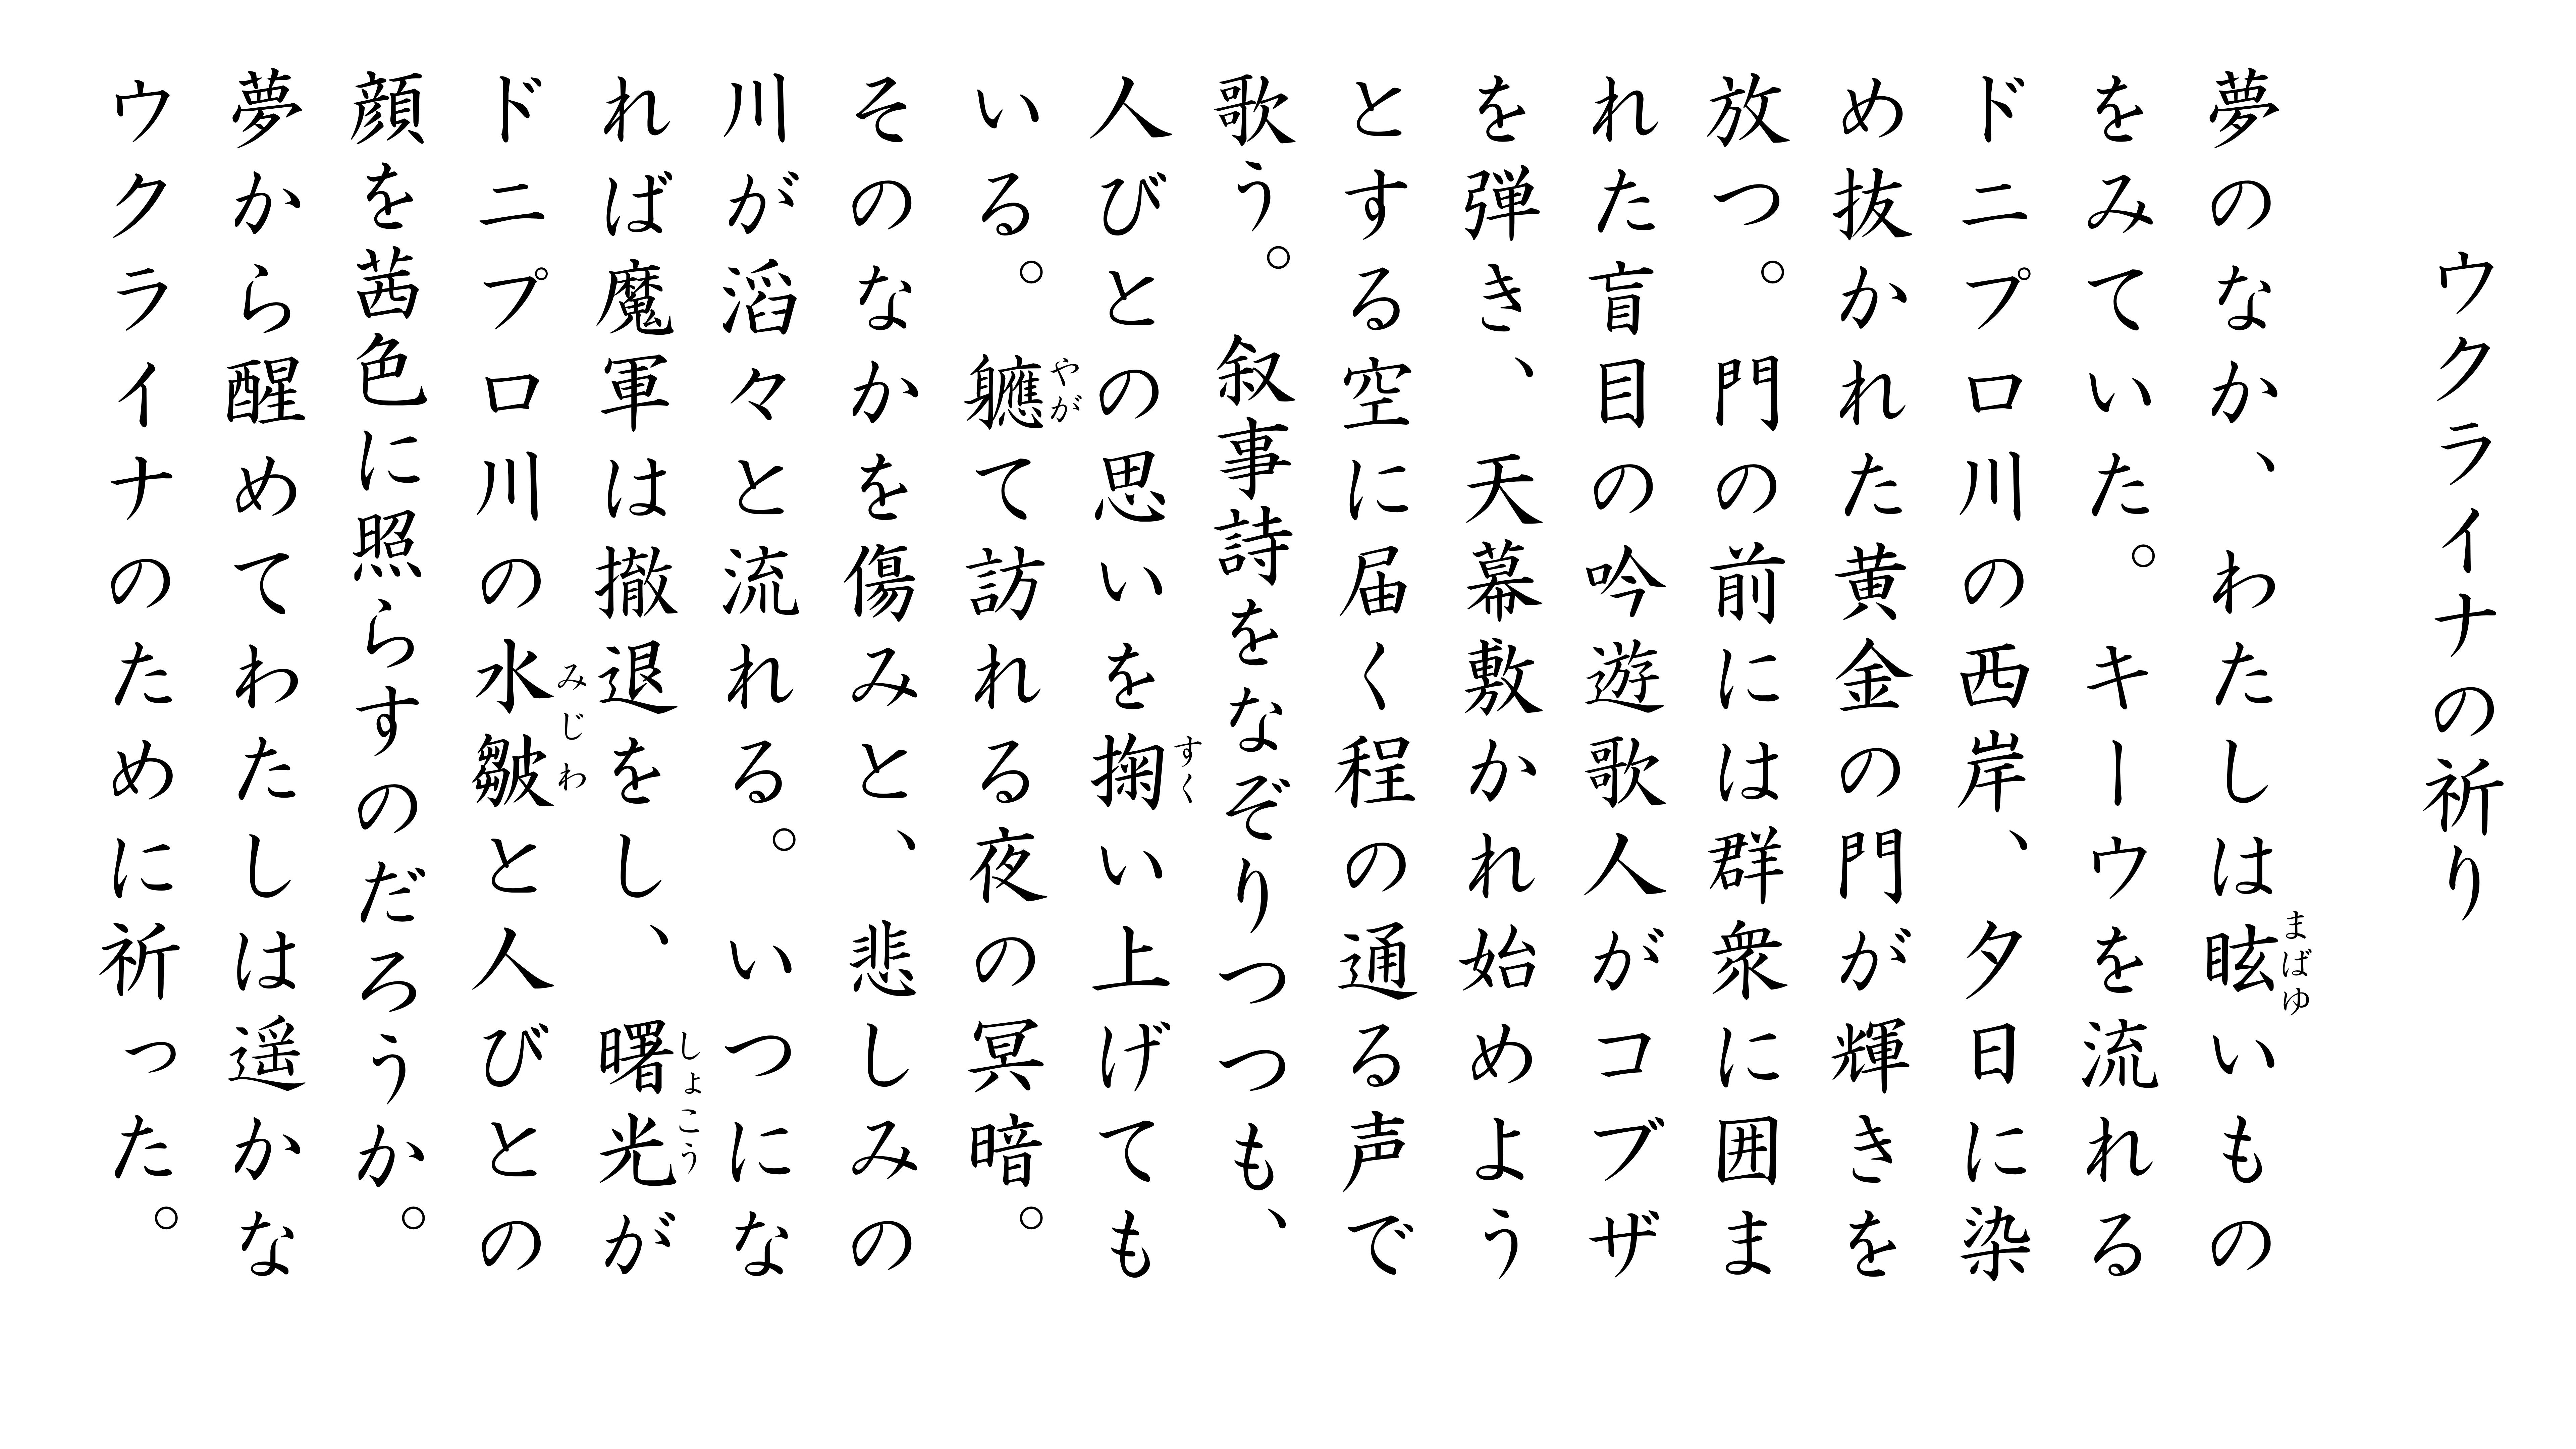 ウクライナの祈り
夢のなか、わたしは眩いもの
をみていた。キーウを流れる
ドニプロ川の西岸、夕日に染
め抜かれた黄金の門が輝きを
放つ。門の前には群衆に囲ま
れた盲目の吟遊歌人がコブザ
を弾き、天幕敷かれ始めよう
とする空に届く程の通る声で
歌う。叙事詩をなぞりつつも、
人びとの思いを掬い上げても
いる。軈て訪れる夜の冥暗。
そのなかを傷みと、悲しみの
川が滔々と流れる。いつにな
れば魔軍は撤退をし、曙光が
ドニプロ川の水皺と人びとの
顔を茜色に照らすのだろうか。
夢から醒めてわたしは遥かな
ウクライナのために祈った。
まばゆ
すく
やが
しょこう
みじわ